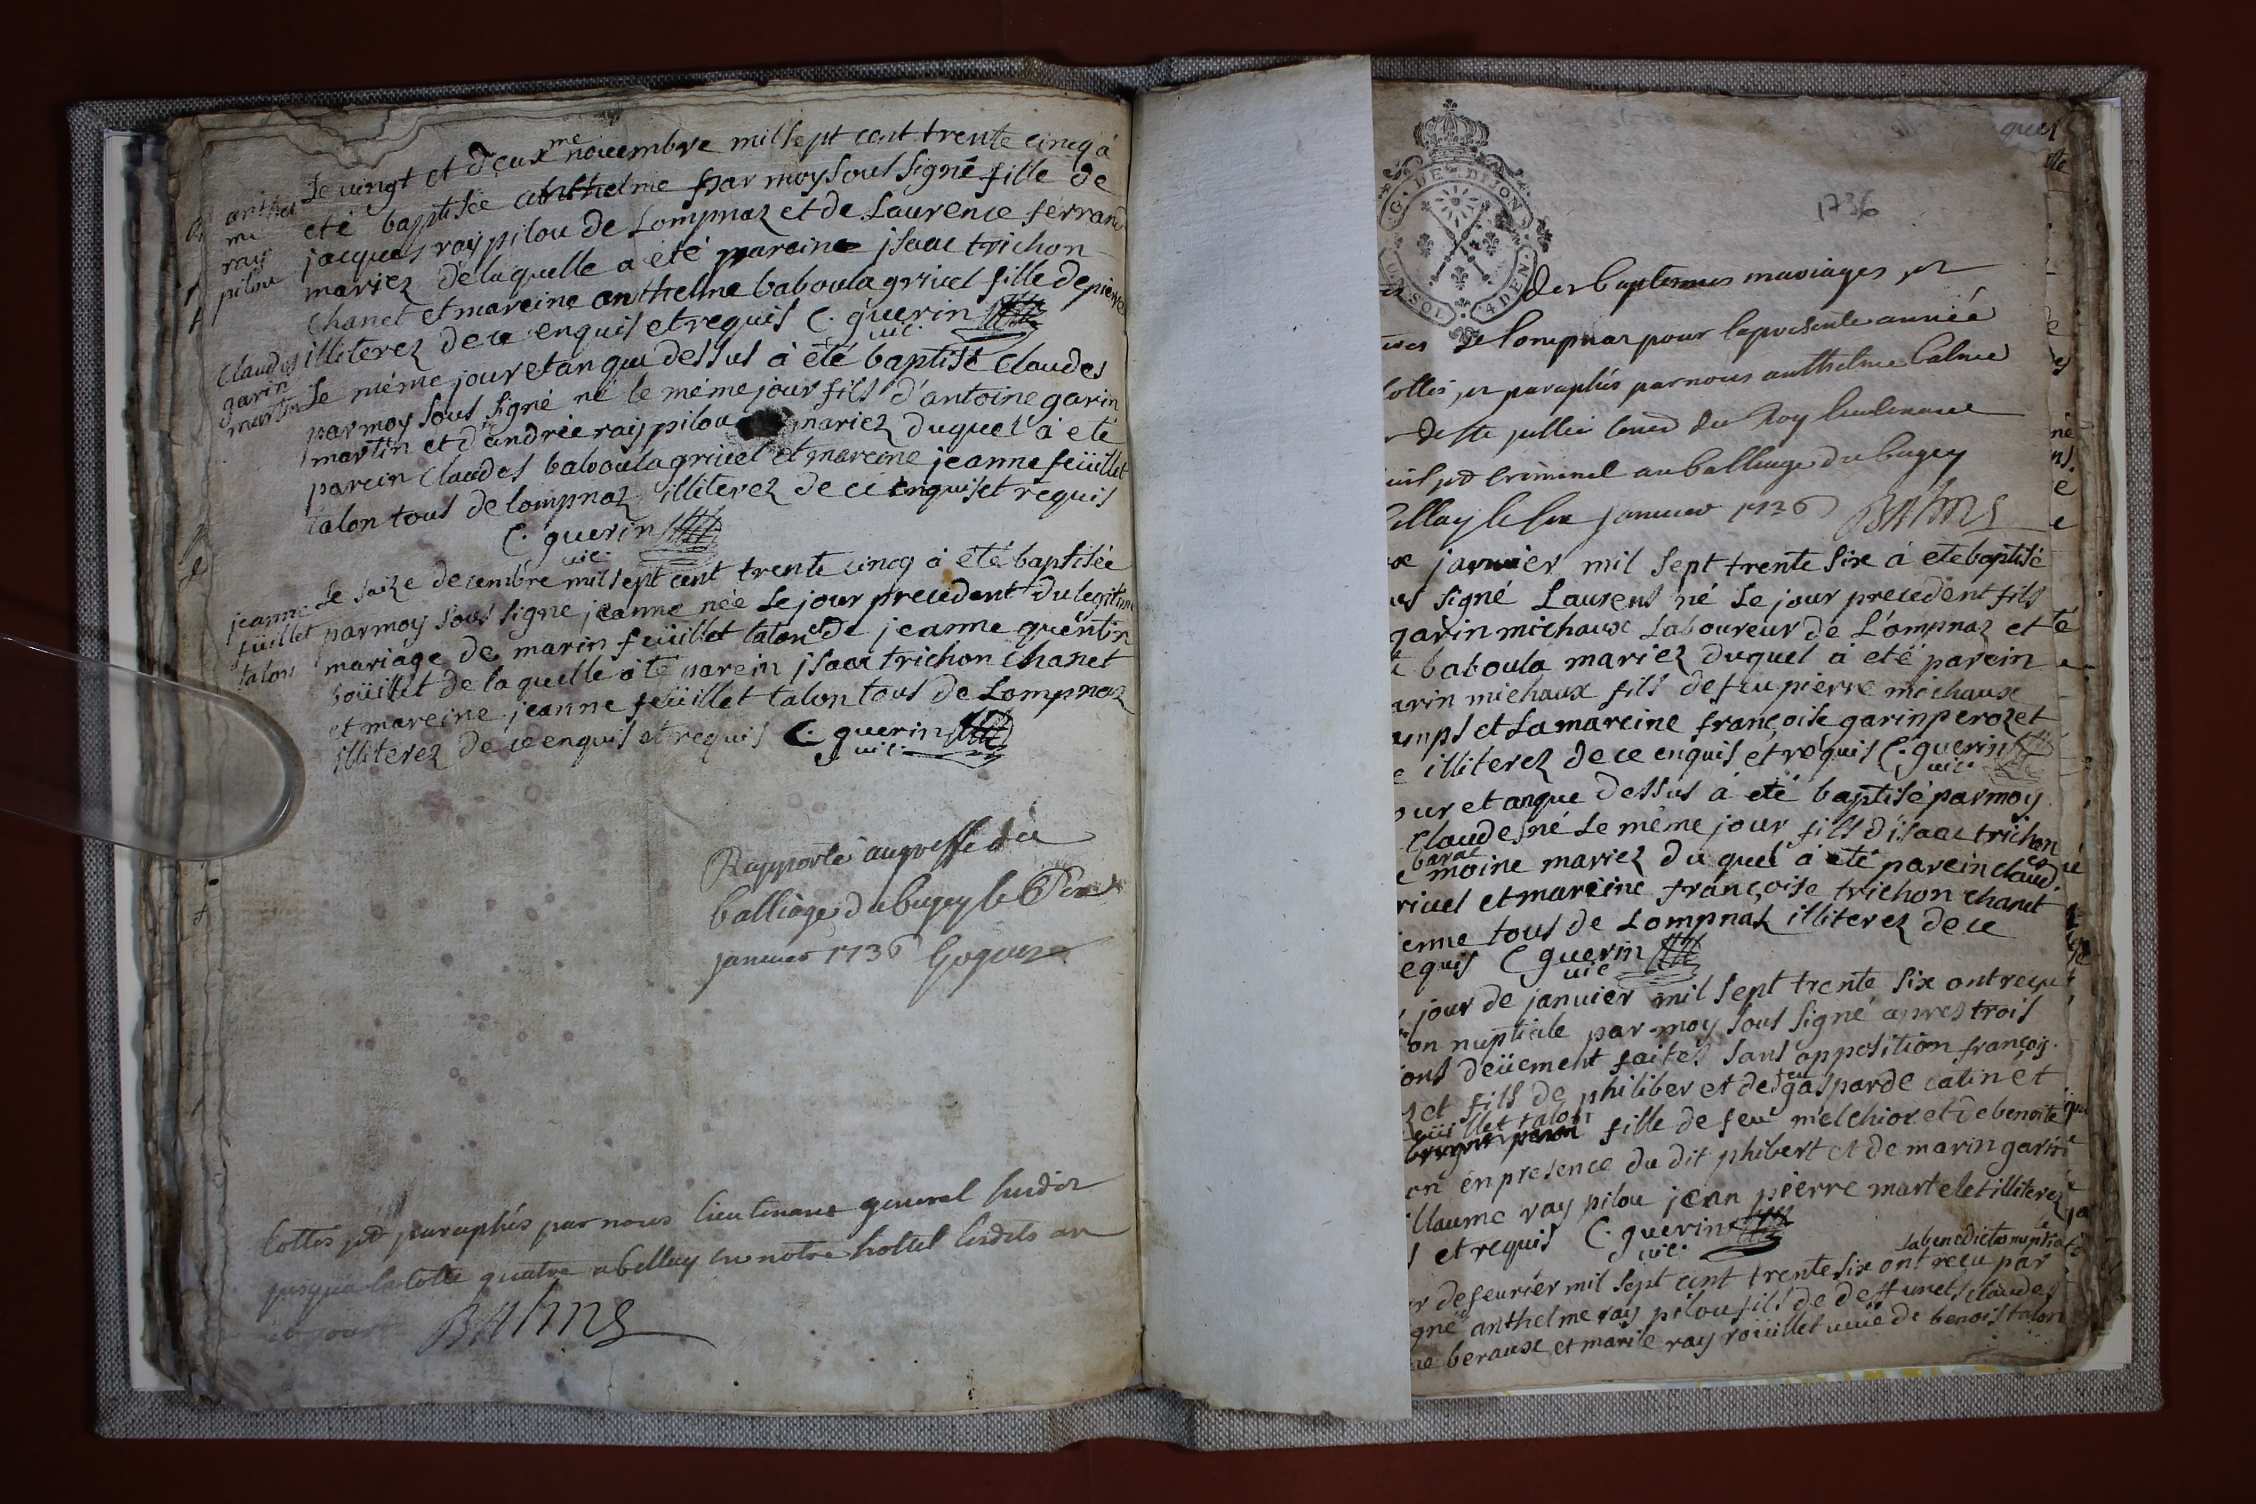 Le vingt et deuxme novembre mil sept cent trente cinq à
été baptisée anthelme par moy sous signé fille de
jacques ray pilou de Lompnaz et de Laurence ferrand
mariez de laquelle a été pareine isaac trichon
chanet et mareine anthelme baboula grivel fille de pierre
illiterez de ce enquis et requis C. guerin
vic.
anthel
me
ray
pilou
Le même jour et an que dessus à été baptisé Claudes
par moy sous signé né le même jour fils d'antoine garin
martin et d'andrée ray pilou mariez duquel à eté
parein Claudes baboula grivel et mareine jeanne feüillet
talon tous de lompnaz illiterez de ce enquis et requis
C. guerin
vic.
Claudes
garin
martin
Le saize decembre mil sept cent trente cinq à été baptisée
par moy sous signe jeanne née Le jour precedent du legitime
mariage de marin feüillet talon de jeanne quentin
boüillet de laquelle à té parein isaac trichon chanet
et mareine jeanne feüillet talon tous de Lompnaz
illiterez de ce enquis et requis C. guerin
vic.
jeanne
füillet
talon
Rapporté au greffe du
balliage du bugey le six
janvier 1736 Goguet
Cottés et paraphés par nous lieutenant general susdit
jusqua la cotte quatre a belley en notre hottel lesdits an
et jour Balme
1736
G. DE DIJON
SOL 4 DEN.
des baptemes mariages et
de lompnaz pour la presente année
cottés et paraphés par nous anthelme balme
de ste jullie cons du Roy lieutenant
civil et criminel au balliage du bugey
Belley le six janvier 1736 Balme
janvier mil sept trente six à eté baptisé
signé Laurens né Le jour precedent fils
garin michaux Laboureur de Lompnaz et
baboula mariez duquel à eté parein
arin michaux fils de feu pierre michaux
amps et La mareine françoise garin perozet
illiterez de ce enquis et requis C. guerin
vic.
our et an que dessus à eté baptisé par moy
Claudes né Le même jour fils d'isaac trichon
barat
moine mariez du quel à eté parein claudes
rivel et mareine françoise trichon chanet
enne tous de Lompnaz illiterez de ce
equis C guerin
vic
jour de janvier mil sept trente six ont reçu
on nuptiale par moy sous signé apres trois
ons deüement faites sans opposition françois
et fils de philiber et de feu gasparde catin et
feüillet talon
fille de feu melchior et de benoite
on en presence du dit phibert et de marin garin
illaume ray pilou jean pierre martelet illiterez
et requis C. guerin
vic.
la benediction nuptiale
r de feurier mil sept cent trente six ont reçu par
gné anthelme ray pilou fils de deffunets claudes
beraux et marie ray roüillet veuë de benois talon